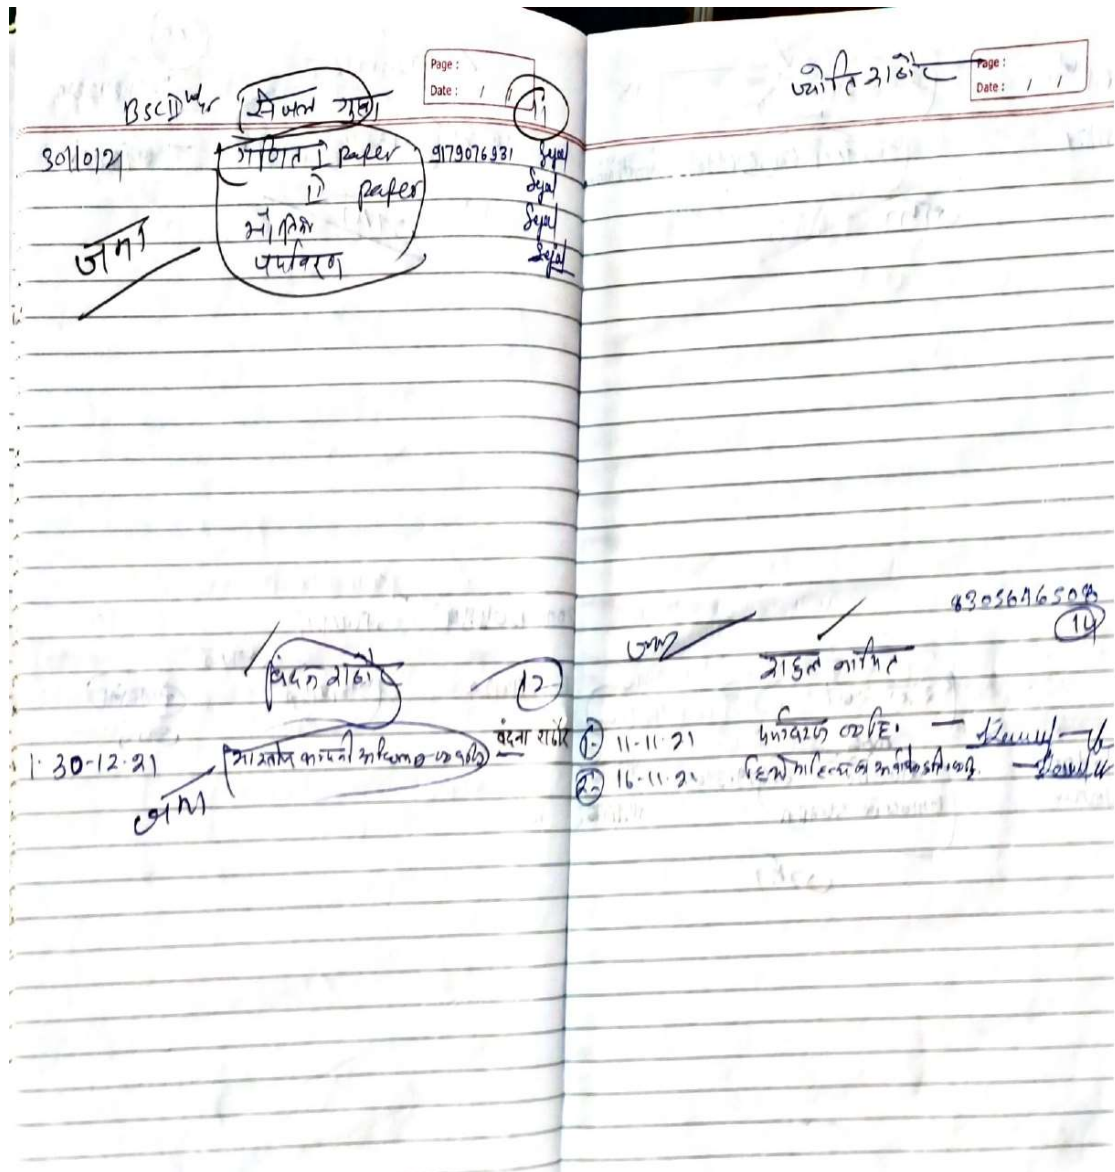 Page :
Date : / /
BSC II Year सेजल गुप्ता 11
30/10/21 गणित I paper 9179076931 Sejal
II paper Sejal
भौतिक Sejal
पर्यावरण Sejal
जमा
वंदना राठौर 12
1. 30-12-21 भारतीय कम्पनी अधिनियम वंदना राठौर
जमा
ज्योति राठौर
Page :
Date : / /
14
जमा राहुल
1- 11-11-21 पर्यावरण
2- 16-11-21 हिन्दी साहित्य का